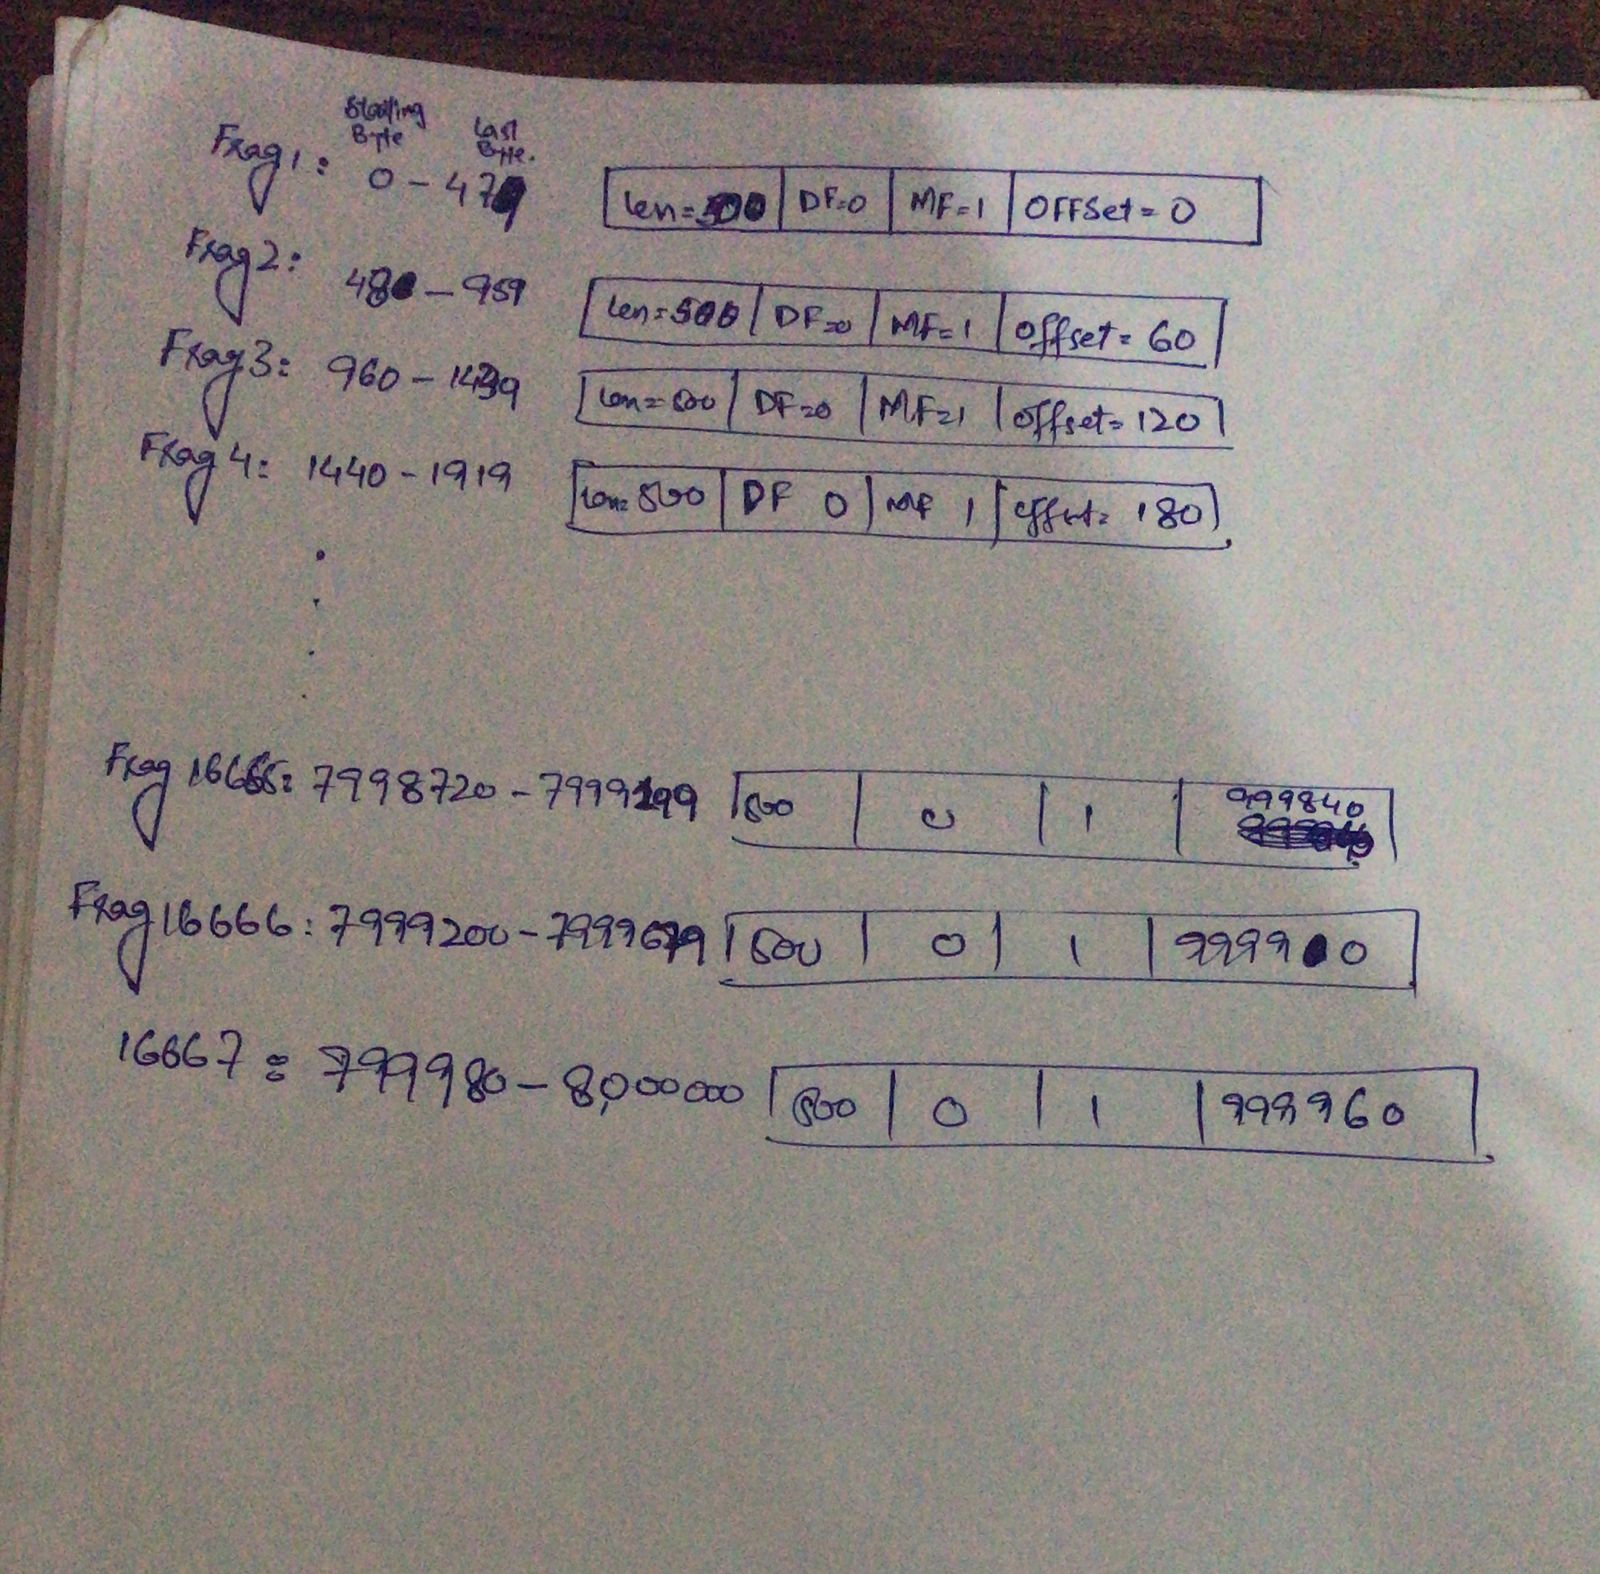 Starting Byte Last Byte.
Frag 1: 0 - 479 Len=500 DF=0 MF=1 OFFSet = 0
Frag 2: 480 - 959 Len=500 DF=0 MF=1 Offset = 60
Frag 3: 960 - 1439 Len=500 DF=0 MF=1 Offset= 120
Frag 4: 1440 - 1919 Len= 500 DF 0 MF 1 Offset= 180
Frag 16665: 7998720 - 7999199 500 0 1 999840
Frag 16666: 7999200 - 7999679 500 0 1 999900
16667 : 799980 - 8,000000 500 0 1 999960